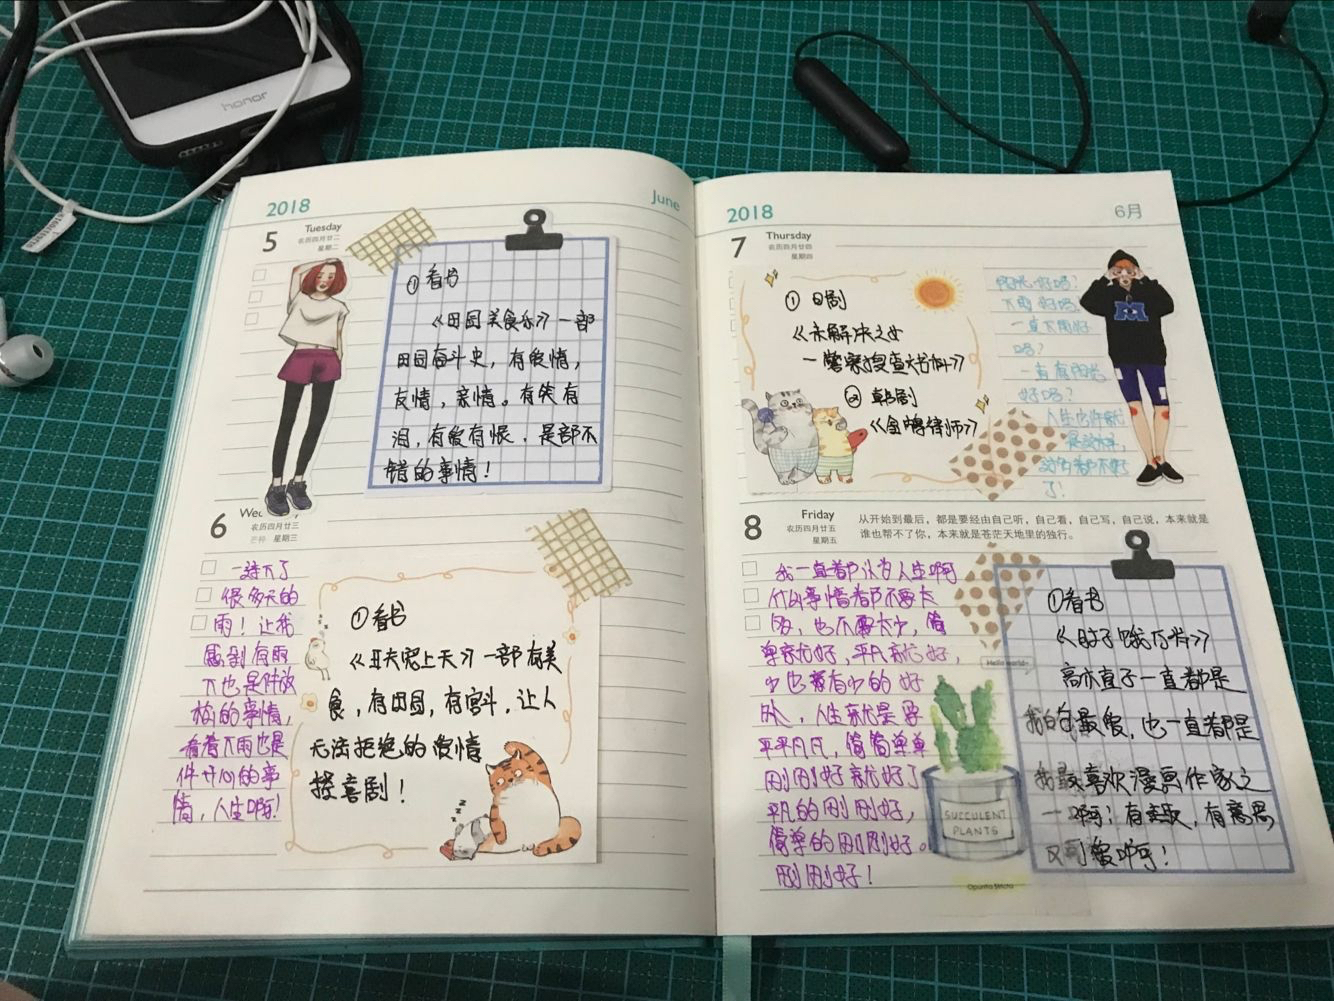 honor
2018
June
5
Tuesday
农历四月廿二
星期二
①看书
《田园美食乐》一部
田园奋斗史，有爱情，
友情，亲情。有笑有
泪，有爱有恨，是部不
错的事情！
6
农历四月廿三
芒种 星期三
一连下了
很多天的
雨！让我
感到有雨
下也是件
的事情，
看着下雨也是
件开心的事
情，人生啊！
①看书
上天》一部有美
食，有田园，有宫斗，让人
无法拒绝的爱情
喜剧！
2018
6月
7
Thursday
农历四月廿四
星期四
①日剧
《未解决之女
一警察搜查》
②韩剧
《律师》
阳光好吗？
下雨好吗，
一直下雨好
吗？
一直有阳光
好吗？
人生也许就
是这样，
了！
8
Friday
农历四月廿五
星期五
从开始到最后，都是要经由自己听，自己看，自己写，自己说，本来就是
谁也帮不了你，本来就是苍茫天地里的独行。
我一直都认为人生啊
什么事情都不要太
多，也不要太少，简
单就好，平凡就好，
少也有少的好
处，人生就是要
平平凡凡，简简单单
刚刚好就好了
平凡的刚刚好，
简单的刚刚好。
刚刚好！
Hello world~
SUCCULENT
PLANTS
①看书
《肚子饿了》
高木直子一直都是
我的最爱，也一直都是
我最喜欢漫画作家之
一啊！有趣，有意思，
又可爱啊！